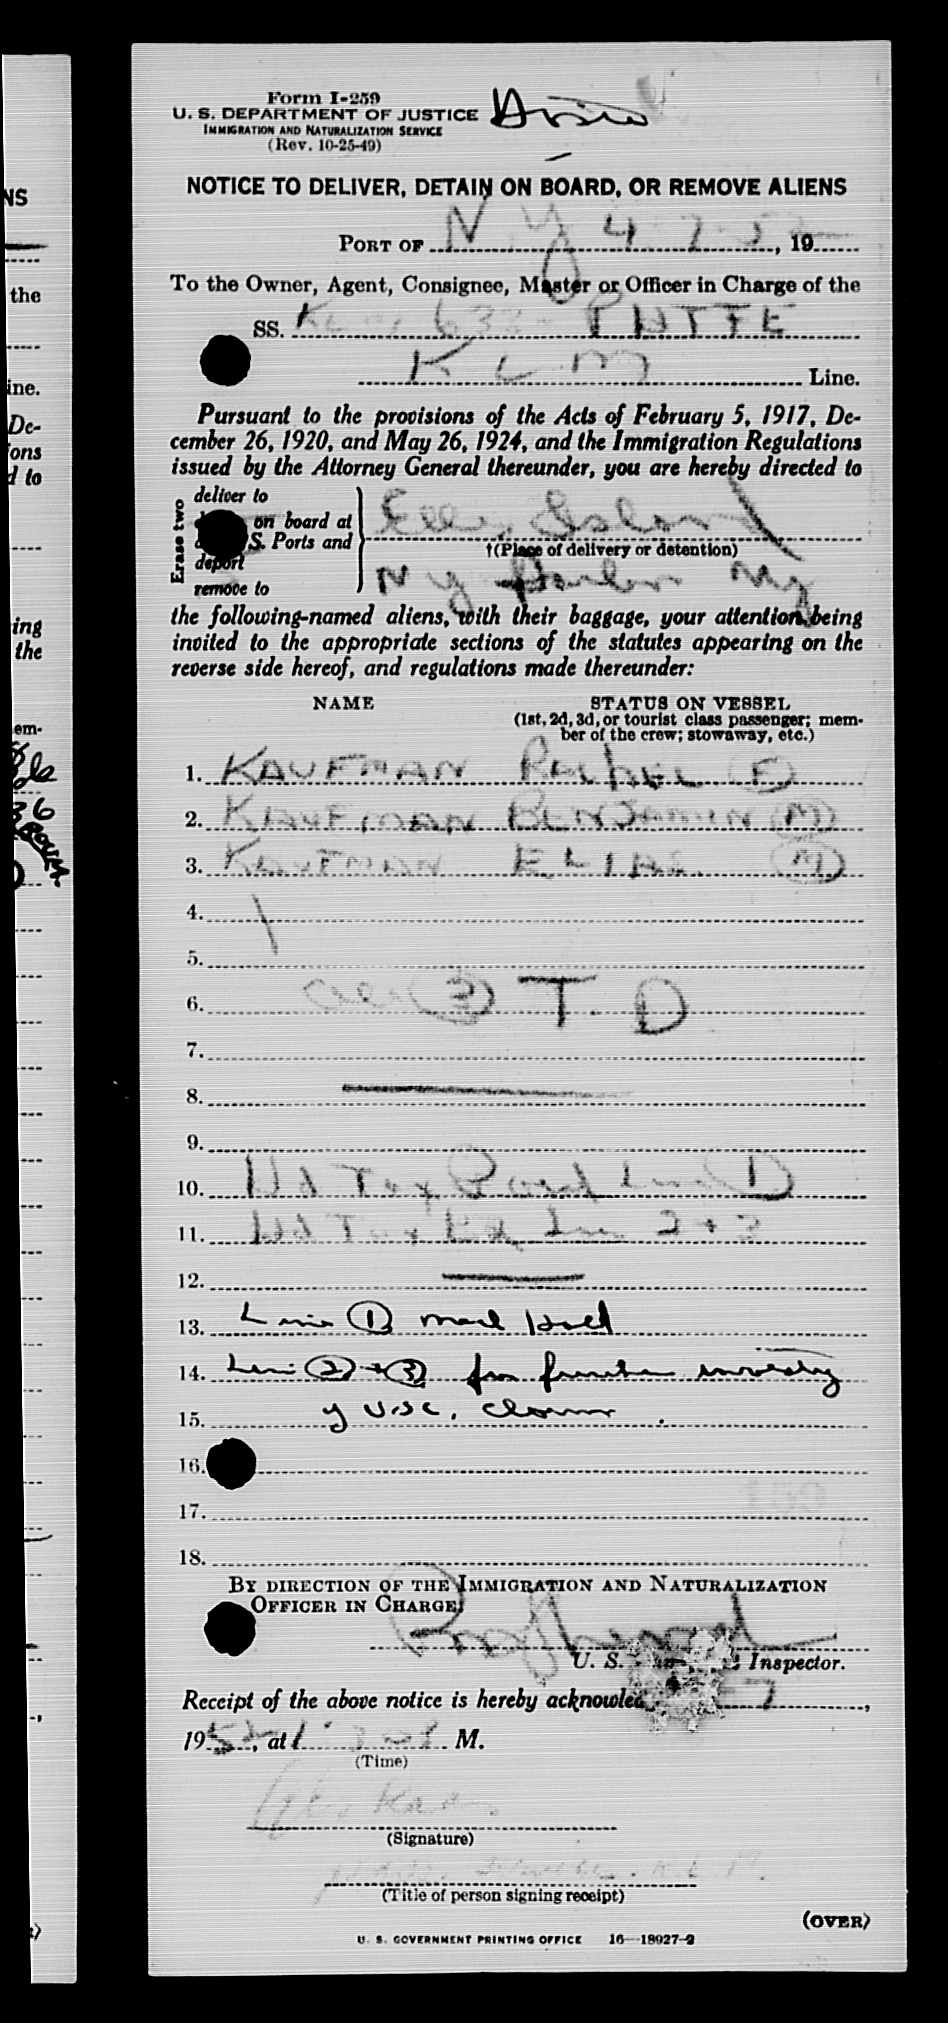 NS
the
ine.
De-
ons
d to
ing
the
em-
36
Form I-259
U. S. DEPARTMENT OF JUSTICE
IMMIGRATION AND NATURALIZATION SERVICE
(Rev. 10-25-49)
NOTICE TO DELIVER, DETAIN ON BOARD, OR REMOVE ALIENS
PORT OF N Y 4 7 52, 19
To the Owner, Agent, Consignee, Master or Officer in Charge of the
SS. KLM 633 - PHTFE
K L M Line.
Pursuant to the provisions of the Acts of February 5, 1917, De-
cember 26, 1920, and May 26, 1924, and the Immigration Regulations
issued by the Attorney General thereunder, you are hereby directed to
Erase two
deliver to
on board at
S. Ports and
deport
remove to
Ellis Island
†(Place of delivery or detention)
N Y Harbor N Y
the following-named aliens, with their baggage, your attention being
invited to the appropriate sections of the statutes appearing on the
reverse side hereof, and regulations made thereunder:
NAME
STATUS ON VESSEL
(1st, 2d, 3d, or tourist class passenger; mem-
ber of the crew; stowaway, etc.)
1. KAUFMAN RACHEL (F)
2. KAUFMAN BENJAMIN (M)
3. KAUFMAN ELIAS (M)
4.
5.
6. (3) T. D
7.
8.
9.
10. Hd Tax Paid Line 1
11. Hd Tax Line 2 + 3
12.
13. Line 1 Med Hold
14. Line 2 + 3 for further
15. U.S.C.
16.
17.
18.
BY DIRECTION OF THE IMMIGRATION AND NATURALIZATION
OFFICER IN CHARGE:
U. S. Inspector.
Receipt of the above notice is hereby acknowled 7,
1952, at M.
(Time)
(Signature)
(Title of person signing receipt)
(OVER)
U. S. GOVERNMENT PRINTING OFFICE 16—18927-2